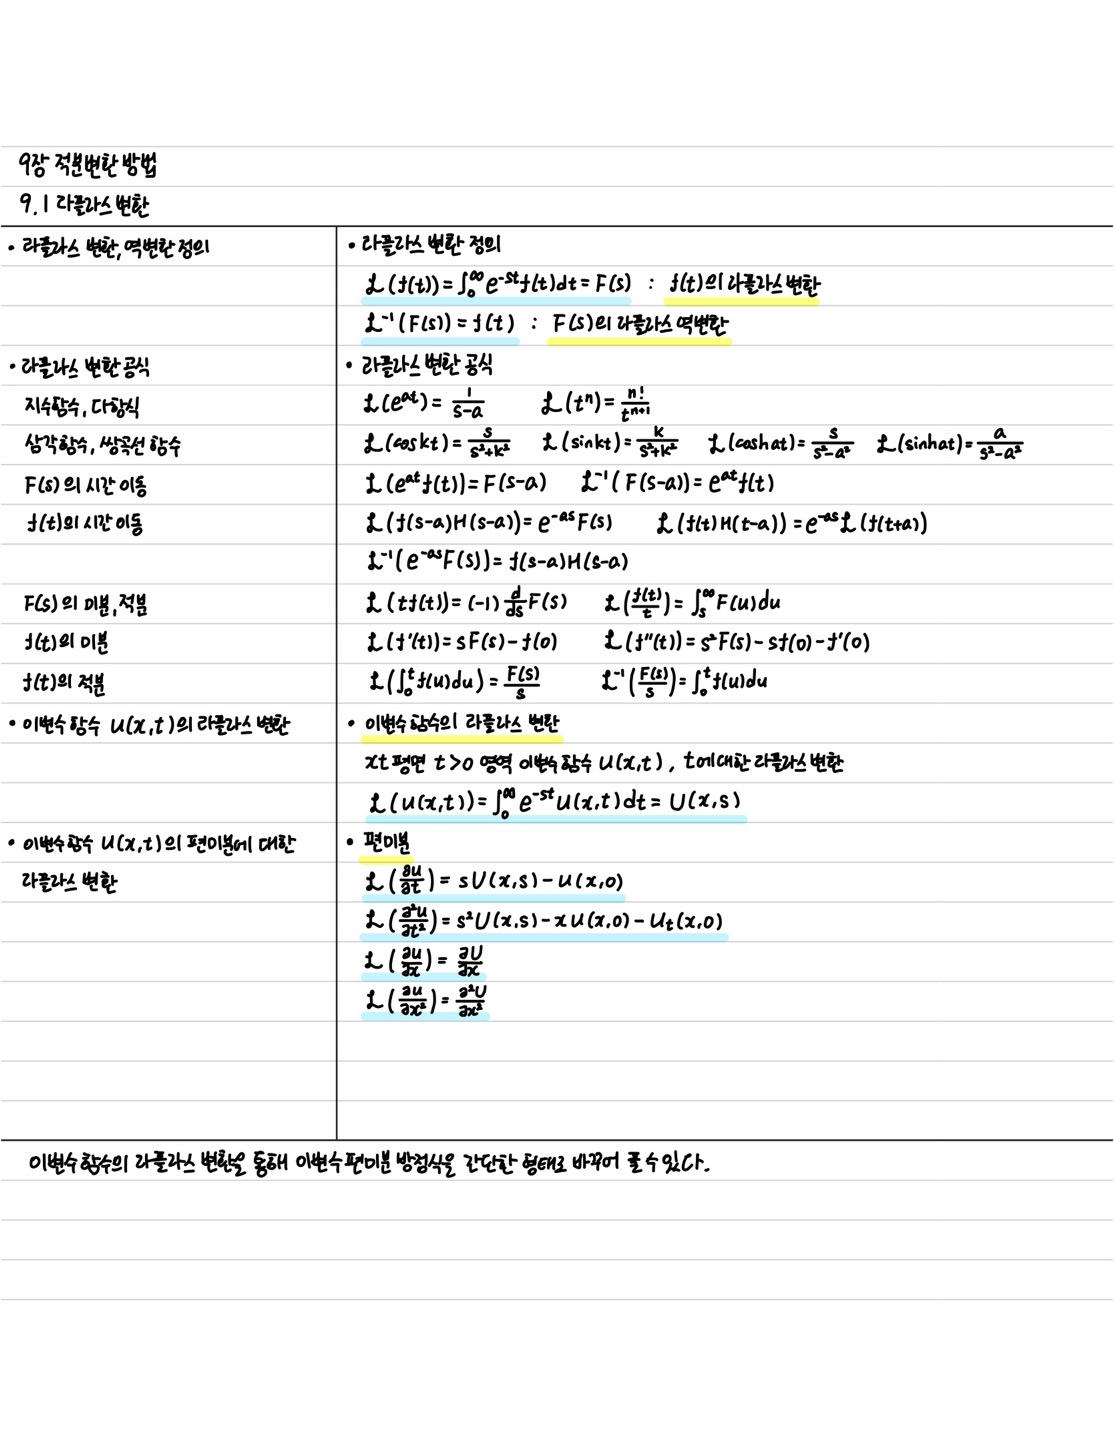 9장 적분변환 방법
9.1 라플라스 변환
• 라플라스 변환, 역변환 정의
• 라플라스 변환 정의
ℒ(f(t)) = ∫₀^∞ e^{-st} f(t) dt = F(s) : f(t)의 라플라스 변환
ℒ⁻¹(F(s)) = f(t) : F(s)의 라플라스 역변환
• 라플라스 변환 공식
• 라플라스 변환 공식
지수함수, 다항식
ℒ(e^{at}) = 1/(s-a) ℒ(tⁿ) = n!/t^{n+1}
삼각함수, 쌍곡선 함수
ℒ(cos kt) = s/(s²+k²) ℒ(sin kt) = k/(s²+k²) ℒ(cosh at) = s/(s²-a²) ℒ(sinh at) = a/(s²-a²)
F(s)의 시간 이동
ℒ(e^{at} f(t)) = F(s-a) ℒ⁻¹(F(s-a)) = e^{at} f(t)
f(t)의 시간 이동
ℒ(f(s-a)H(s-a)) = e^{-as} F(s) ℒ(f(t)H(t-a)) = e^{-as} ℒ(f(t+a))
ℒ⁻¹(e^{-as} F(s)) = f(s-a)H(s-a)
F(s)의 미분, 적분
ℒ(tf(t)) = (-1) d/ds F(s) ℒ(f(t)/t) = ∫ₛ^∞ F(u)du
f(t)의 미분
ℒ(f'(t)) = sF(s) - f(0) ℒ(f''(t)) = s²F(s) - sf(0) - f'(0)
f(t)의 적분
ℒ(∫₀^t f(u)du) = F(s)/s ℒ⁻¹(F(s)/s) = ∫₀^t f(u)du
• 이변수 함수 u(x,t)의 라플라스 변환
• 이변수 함수의 라플라스 변환
xt평면 t>0 영역 이변수 함수 u(x,t), t에 대한 라플라스 변환
ℒ(u(x,t)) = ∫₀^∞ e^{-st} u(x,t) dt = U(x,s)
• 이변수 함수 u(x,t)의 편미분에 대한
라플라스 변환
• 편미분
ℒ(∂u/∂t) = sU(x,s) - u(x,0)
ℒ(∂²u/∂t²) = s²U(x,s) - xu(x,0) - u_t(x,0)
ℒ(∂u/∂x) = ∂U/∂x
ℒ(∂u/∂x²) = ∂²U/∂x²
이변수 함수의 라플라스 변환을 통해 이변수 편미분 방정식을 간단한 형태로 바꾸어 풀 수 있다.